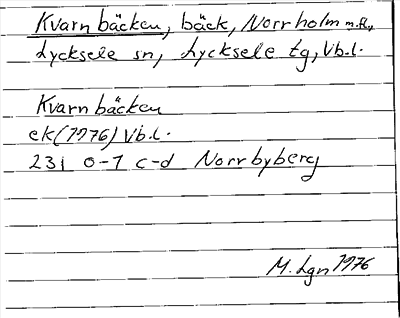 Kvarnbäcken, bäck, Norrholm m.fl.,
Lycksele sn, Lycksele tg, Vb.l.
Kvarnbäcken
ek (1976) Vb.l.
231 0-1 c-d Norrbyberg
M. Lgn 1976